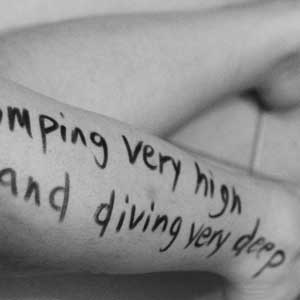 mping very high
and diving very deep